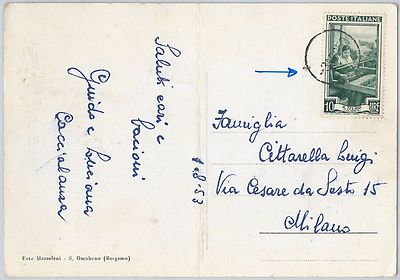 Saluti cari e
bacioni
Guido e Luciana
Caccialanza
1-8-53
POSTE ITALIANE
10
LIRE
Famiglia
Cittarella Luigi
Via Cesare da Sesto 15
Milano
Foto Mazzoleni - S. Omobono (Bergamo)